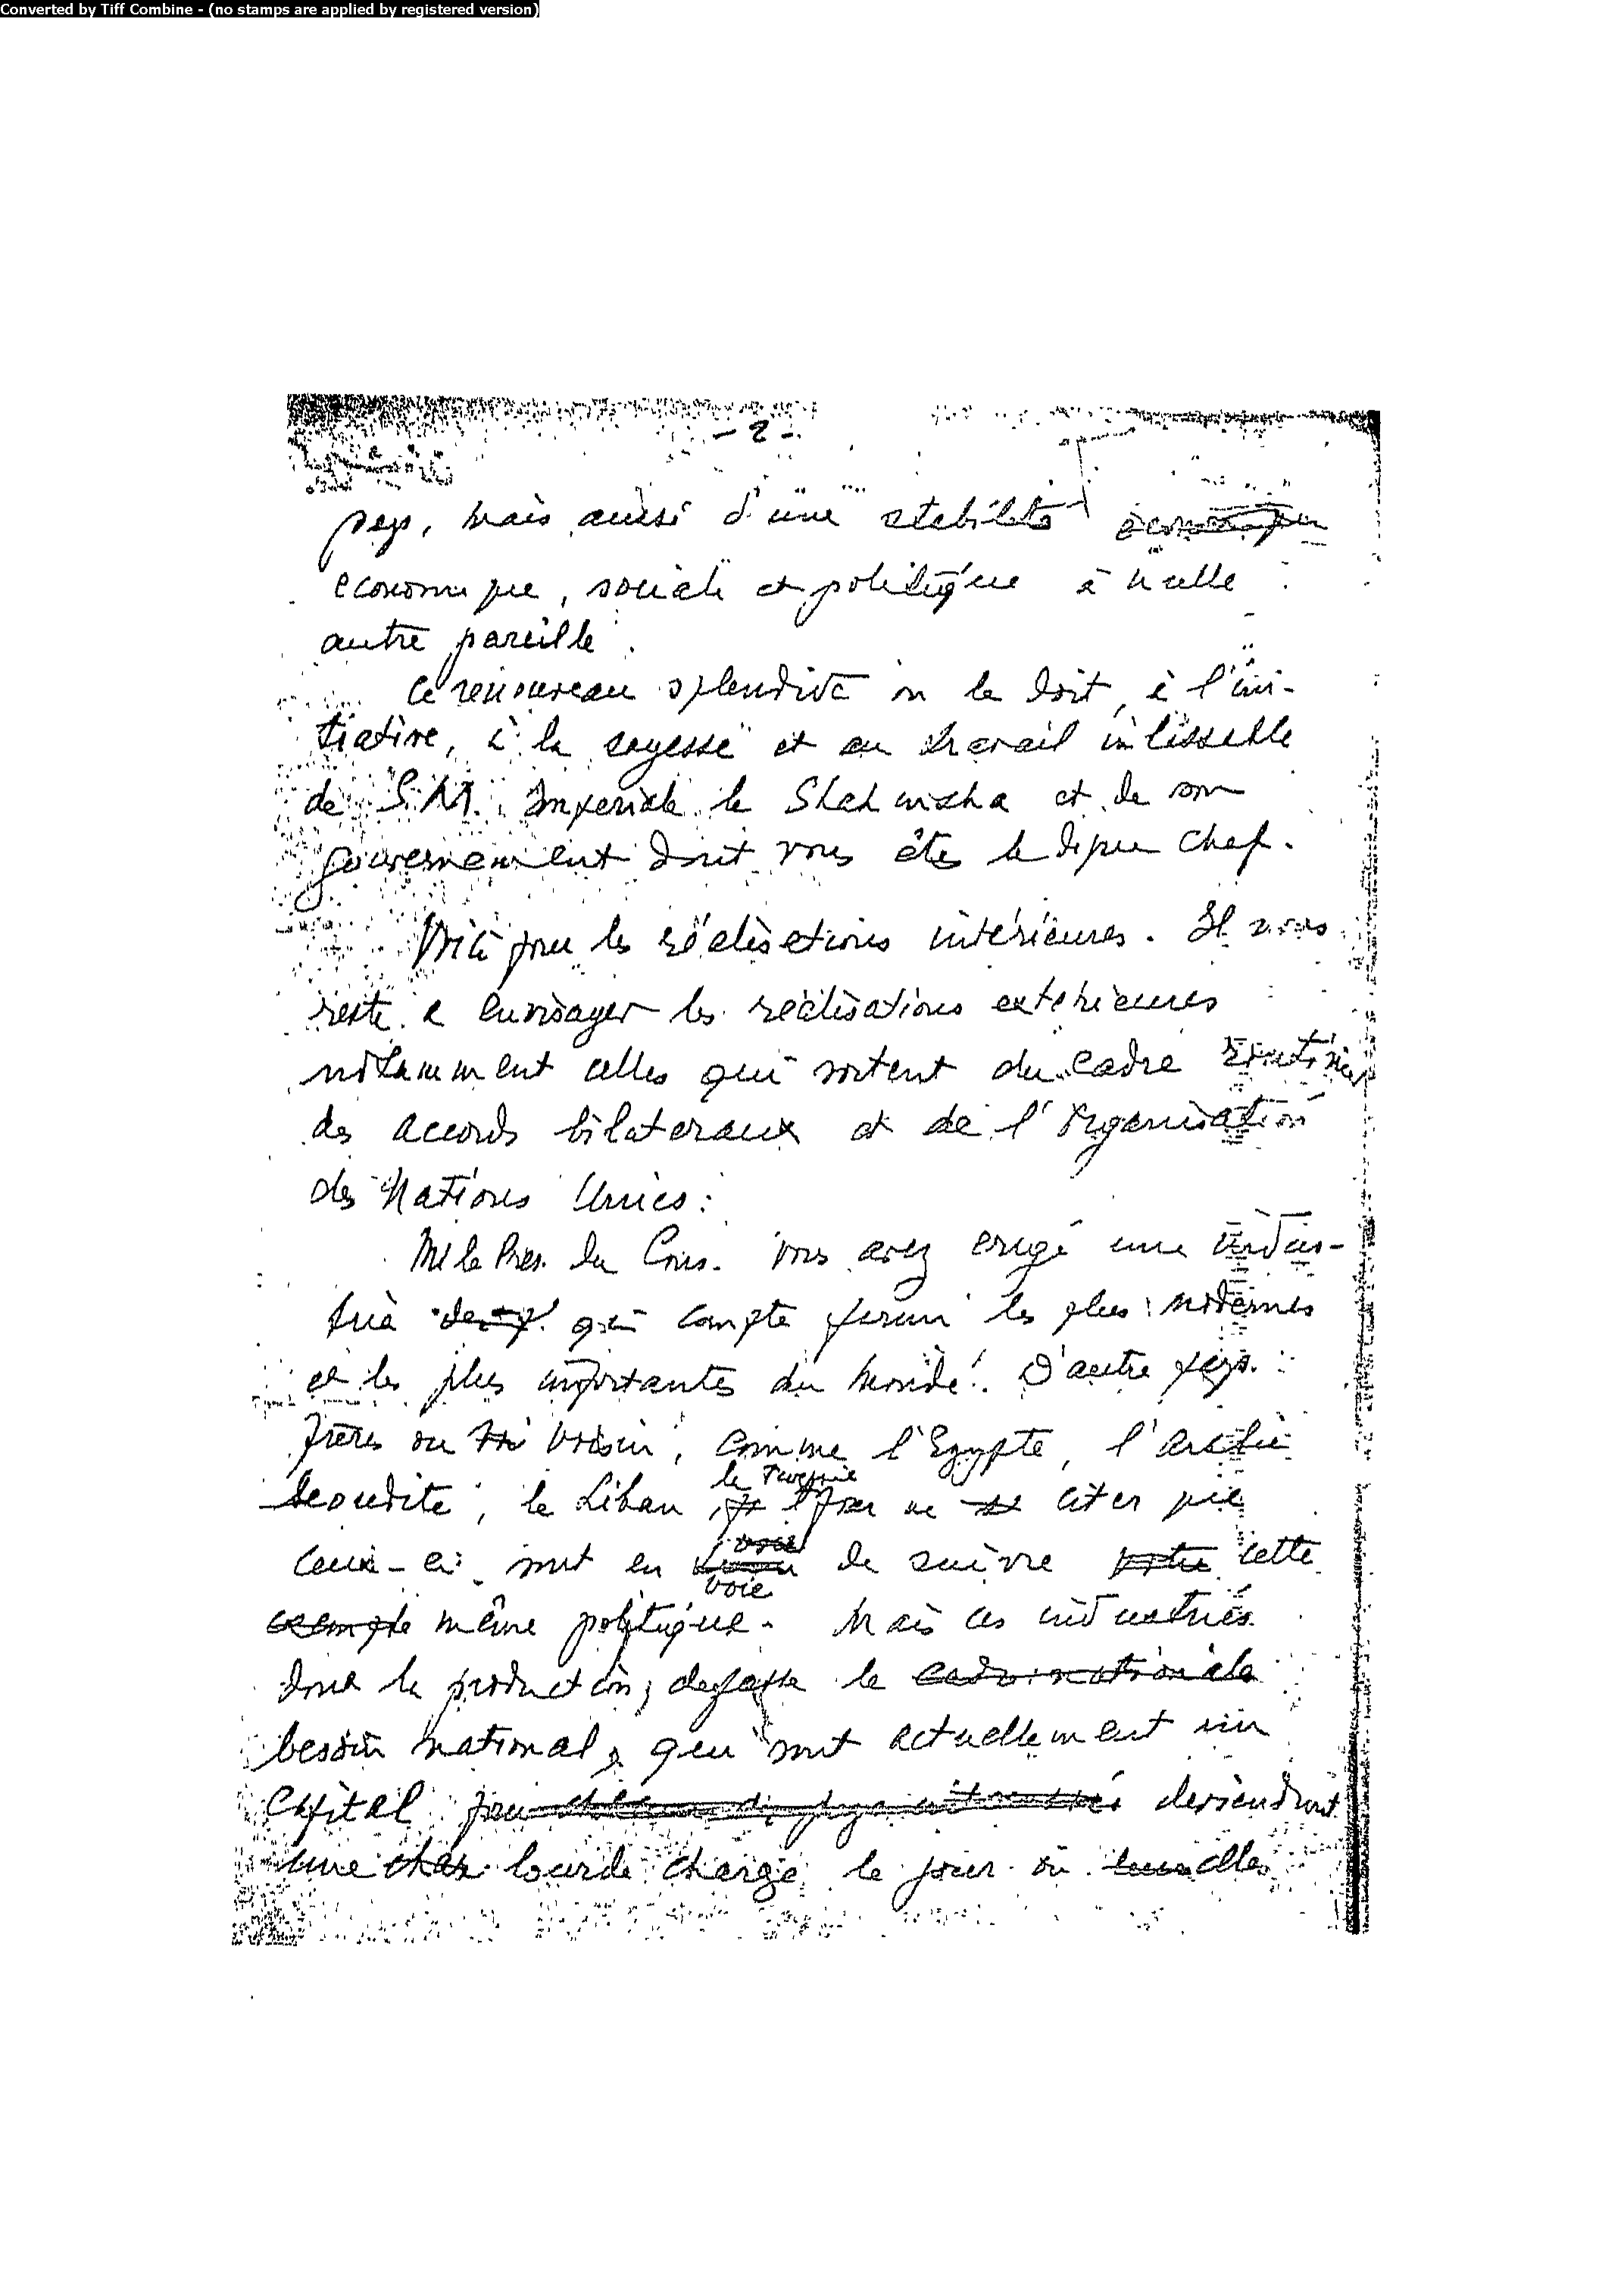 Converted by Tiff Combine - (no stamps are applied by registered version)
- 2 -
pays, mais aussi d'une stabilité
economique, sociale et politique à nulle
autre pareille.
Ce renouveau splendide on le doit, à l'ini-
tiative, à la sagesse et au travail inlassable
de S.M. Imperiale le Shahinsha et de son
gouvernement dont vous êtes le digne chef.
Voilà pour les réalisations intérieures. Il nous
reste a envisager les réalisations exterieures
notamment celles qui sortent du cadre
des accords bilateraux et de l'Organisation
des Nations Unies:
M le Pres. du Cons. Vous avez erigé une indus-
trie qui compte parmi les plus modernes
et les plus importantes du monde. D'autre pays
frères ou voisin, comme l'Egypte, l'Arabie
Seoudite, le Liban, la Turquie
pour ne citer que
ceux-ci sont en voie de suivre cette
exemple même politique. Mais ces industries
dont la production, depasse le
besoin national, qui sont actuellement un
capital deviendront
une lourde charge le jour où elles